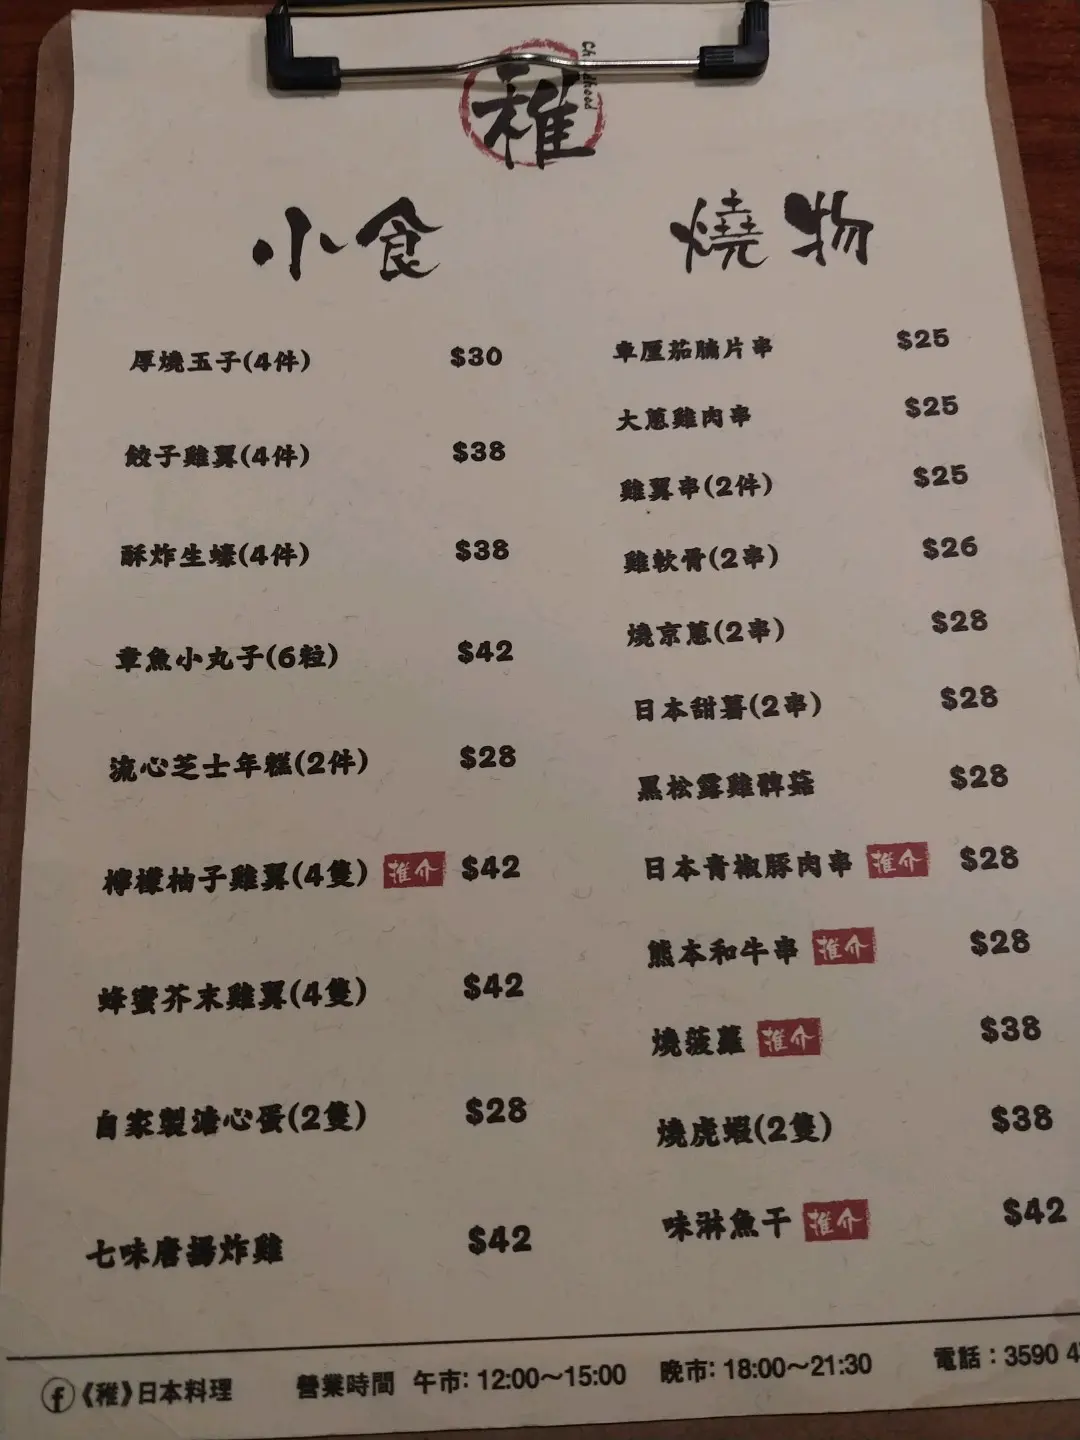 稚
Childhood
小食
厚燒玉子(4件) $30
餃子雞翼(4件) $38
酥炸生蠔(4件) $38
章魚小丸子(6粒) $42
流心芝士年糕(2件) $28
檸檬柚子雞翼(4隻) 推介 $42
蜂蜜芥末雞翼(4隻) $42
自家製溏心蛋(2隻) $28
七味唐揚炸雞 $42
燒物
車厘茄腩片串 $25
大蔥雞肉串 $25
雞翼串(2件) $25
雞軟骨(2串) $26
燒京蔥(2串) $28
日本甜薯(2串) $28
黑松露雞脾菇 $28
日本青椒豚肉串 推介 $28
熊本和牛串 推介 $28
燒菠蘿 推介 $38
燒虎蝦(2隻) $38
味淋魚干 推介 $42
《稚》日本料理 營業時間 午市: 12:00～15:00 晚市: 18:00～21:30 電話：3590 4